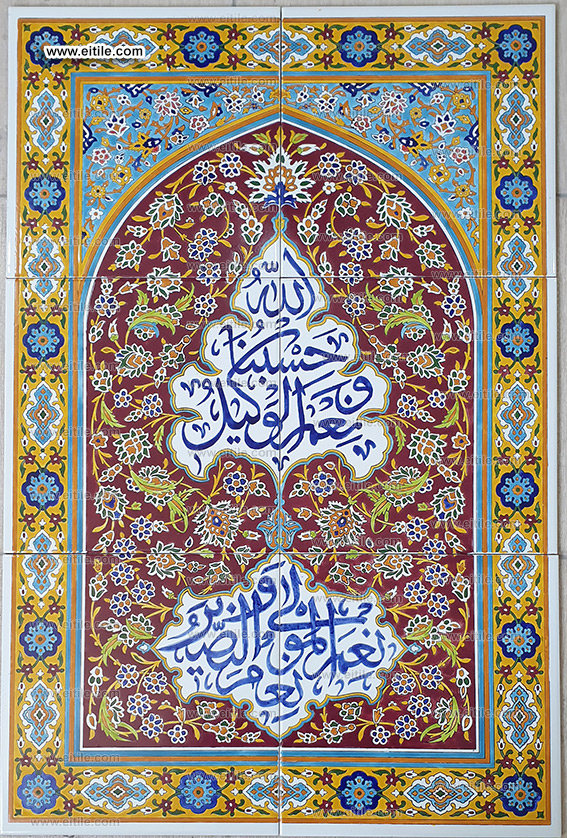 www.eitile.com
حَسْبُنَا اللّٰهُ
وَنِعْمَ الْوَكِيلُ
نِعْمَ الْمَوْلَىٰ وَنِعْمَ النَّصِيرُ